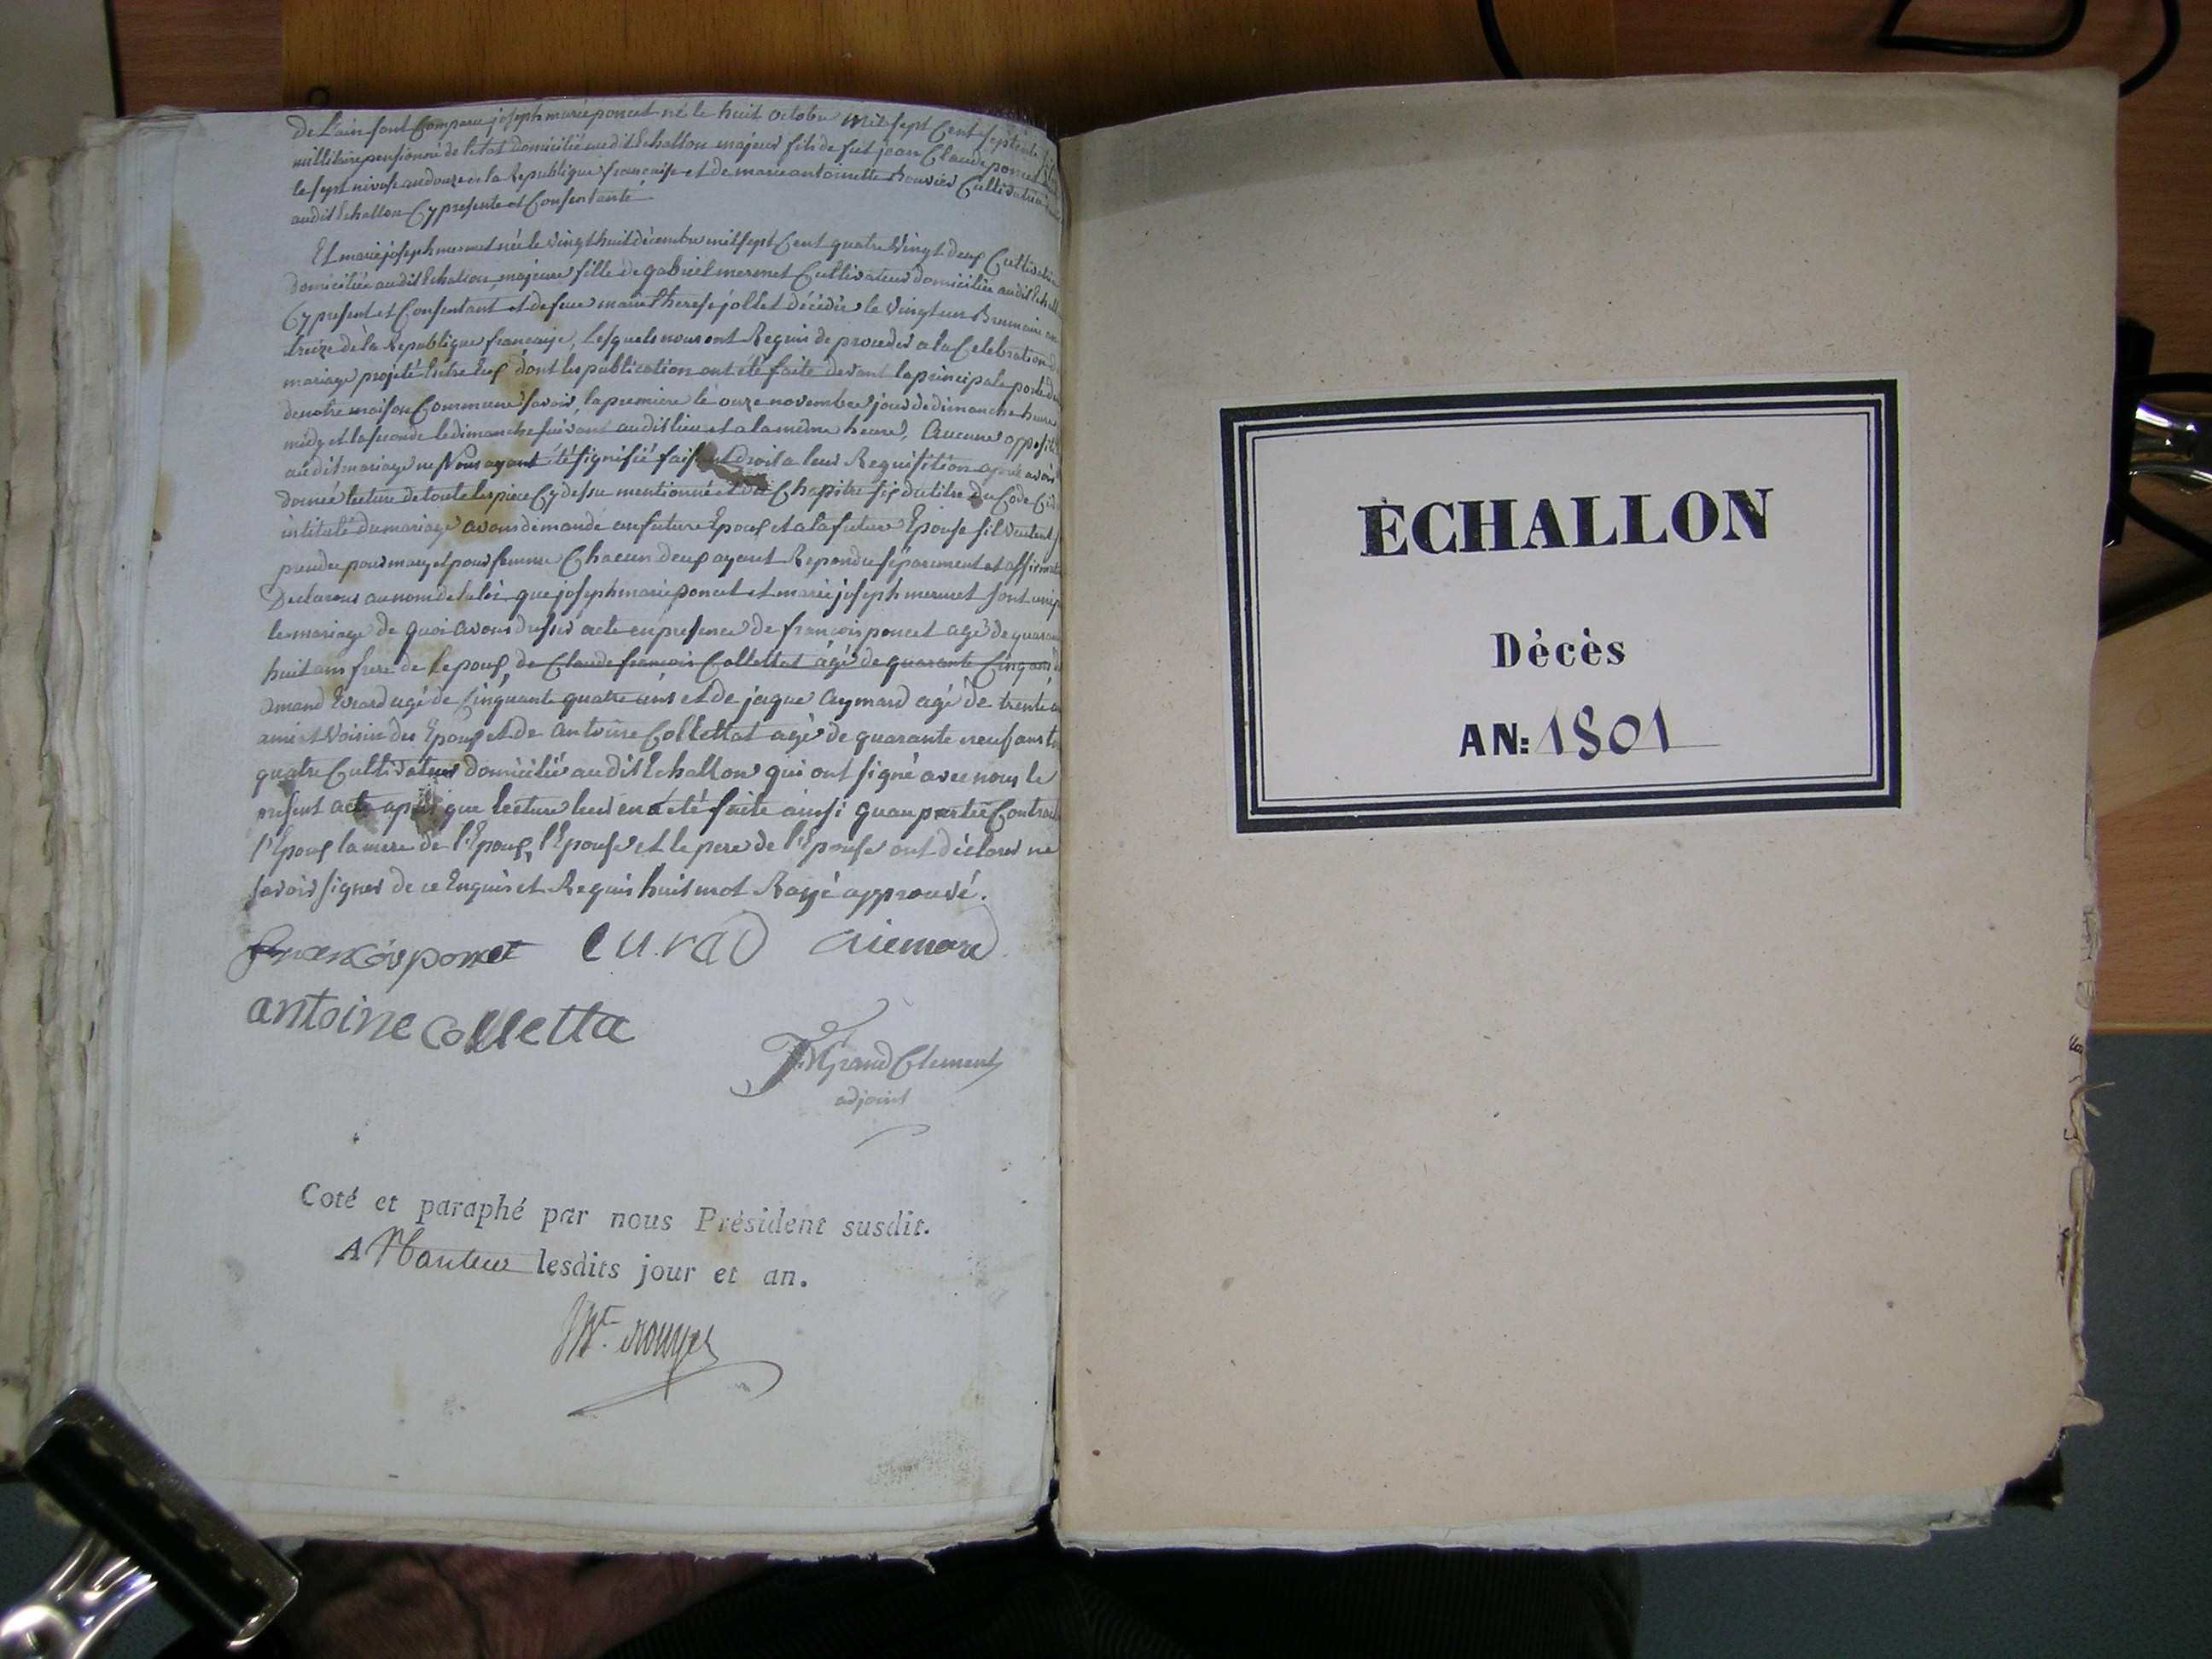 De L'ain sont Comparu joseph marie poncet né le huit octobre mil sept Cent septante
millitaire pensionné de l'etat domicilié audit Echallon majeur fils de fut jean Claude poncet
le sept nivose an douze de la Republique francaise et de marie antoinette Bouvier Cultivatrice
audit Echallon Cy presente et Consentante
Et marie joseph mermet née le vingt huit décembre mil sept Cent quatre vingt deux Cultivatrice
domiciliée audit Echallon, majeure fille de gabriel mermet Cultivateur domicilié audit Echall
Cy present et Consentant et de feue marie therese jollet décédée le vingt un Brumaire an
treize de la Republique francaise, lesquels nous ont Requis de proceder a la Celebration d
mariage projeté Entre Eux dont les publication ont été faite devant la principale porte de
de notre maison Commune savoir, la premiere le onze novembre jour de dimanche heure
midy et la seconde le dimanche suivant audit lieu et a la même heure, Aucune opposit
audit mariage ne Nous ayant été signifié faisant droit a leur Requisition après avoir
donné lecture de toute les piece Cy dessu mentionnée et du Chapitre six du titre du Code Civ
intitulé du mariage avons demandé au future Epoux et a la future Epouse s'il veulent s
prendre pour mary et pour femme Chacun deux ayant Repondu séparement et affirmati
Declarons au nom de la loi que joseph marie poncet et marie joseph mermet sont unis p
le mariage de quoi avons dressé acte en presence de francois poncet agé de quaran
huit ans frere de l'epoux, de Claude francois Collettat agé de quarante Cinq ans d
amand Evrard agé de Cinquante quatre ans et de jaque Aymard agé de trente
ami et Voisin des Epoux et de Antoine Collettat agé de quarante neuf ans t
quatre Cultivateur domicilié audit Echallon qui ont signé avec nous le
present acte après que lecture leur en a été faite ainsi quau partie Contract
l'Epoux la mere de l'Epoux, l'Epouse et le pere de l'Epouse ont déclaré ne
savoir signer de ce Enquis et Requis huit mot Rayé approuvé.
francois poncet Evrad aiemard
antoine colletta
GrandClement
adjoint
Coté et paraphé par nous Président susdit.
A Nantua lesdits jour et an.
ECHALLON
Décès
AN: 1801